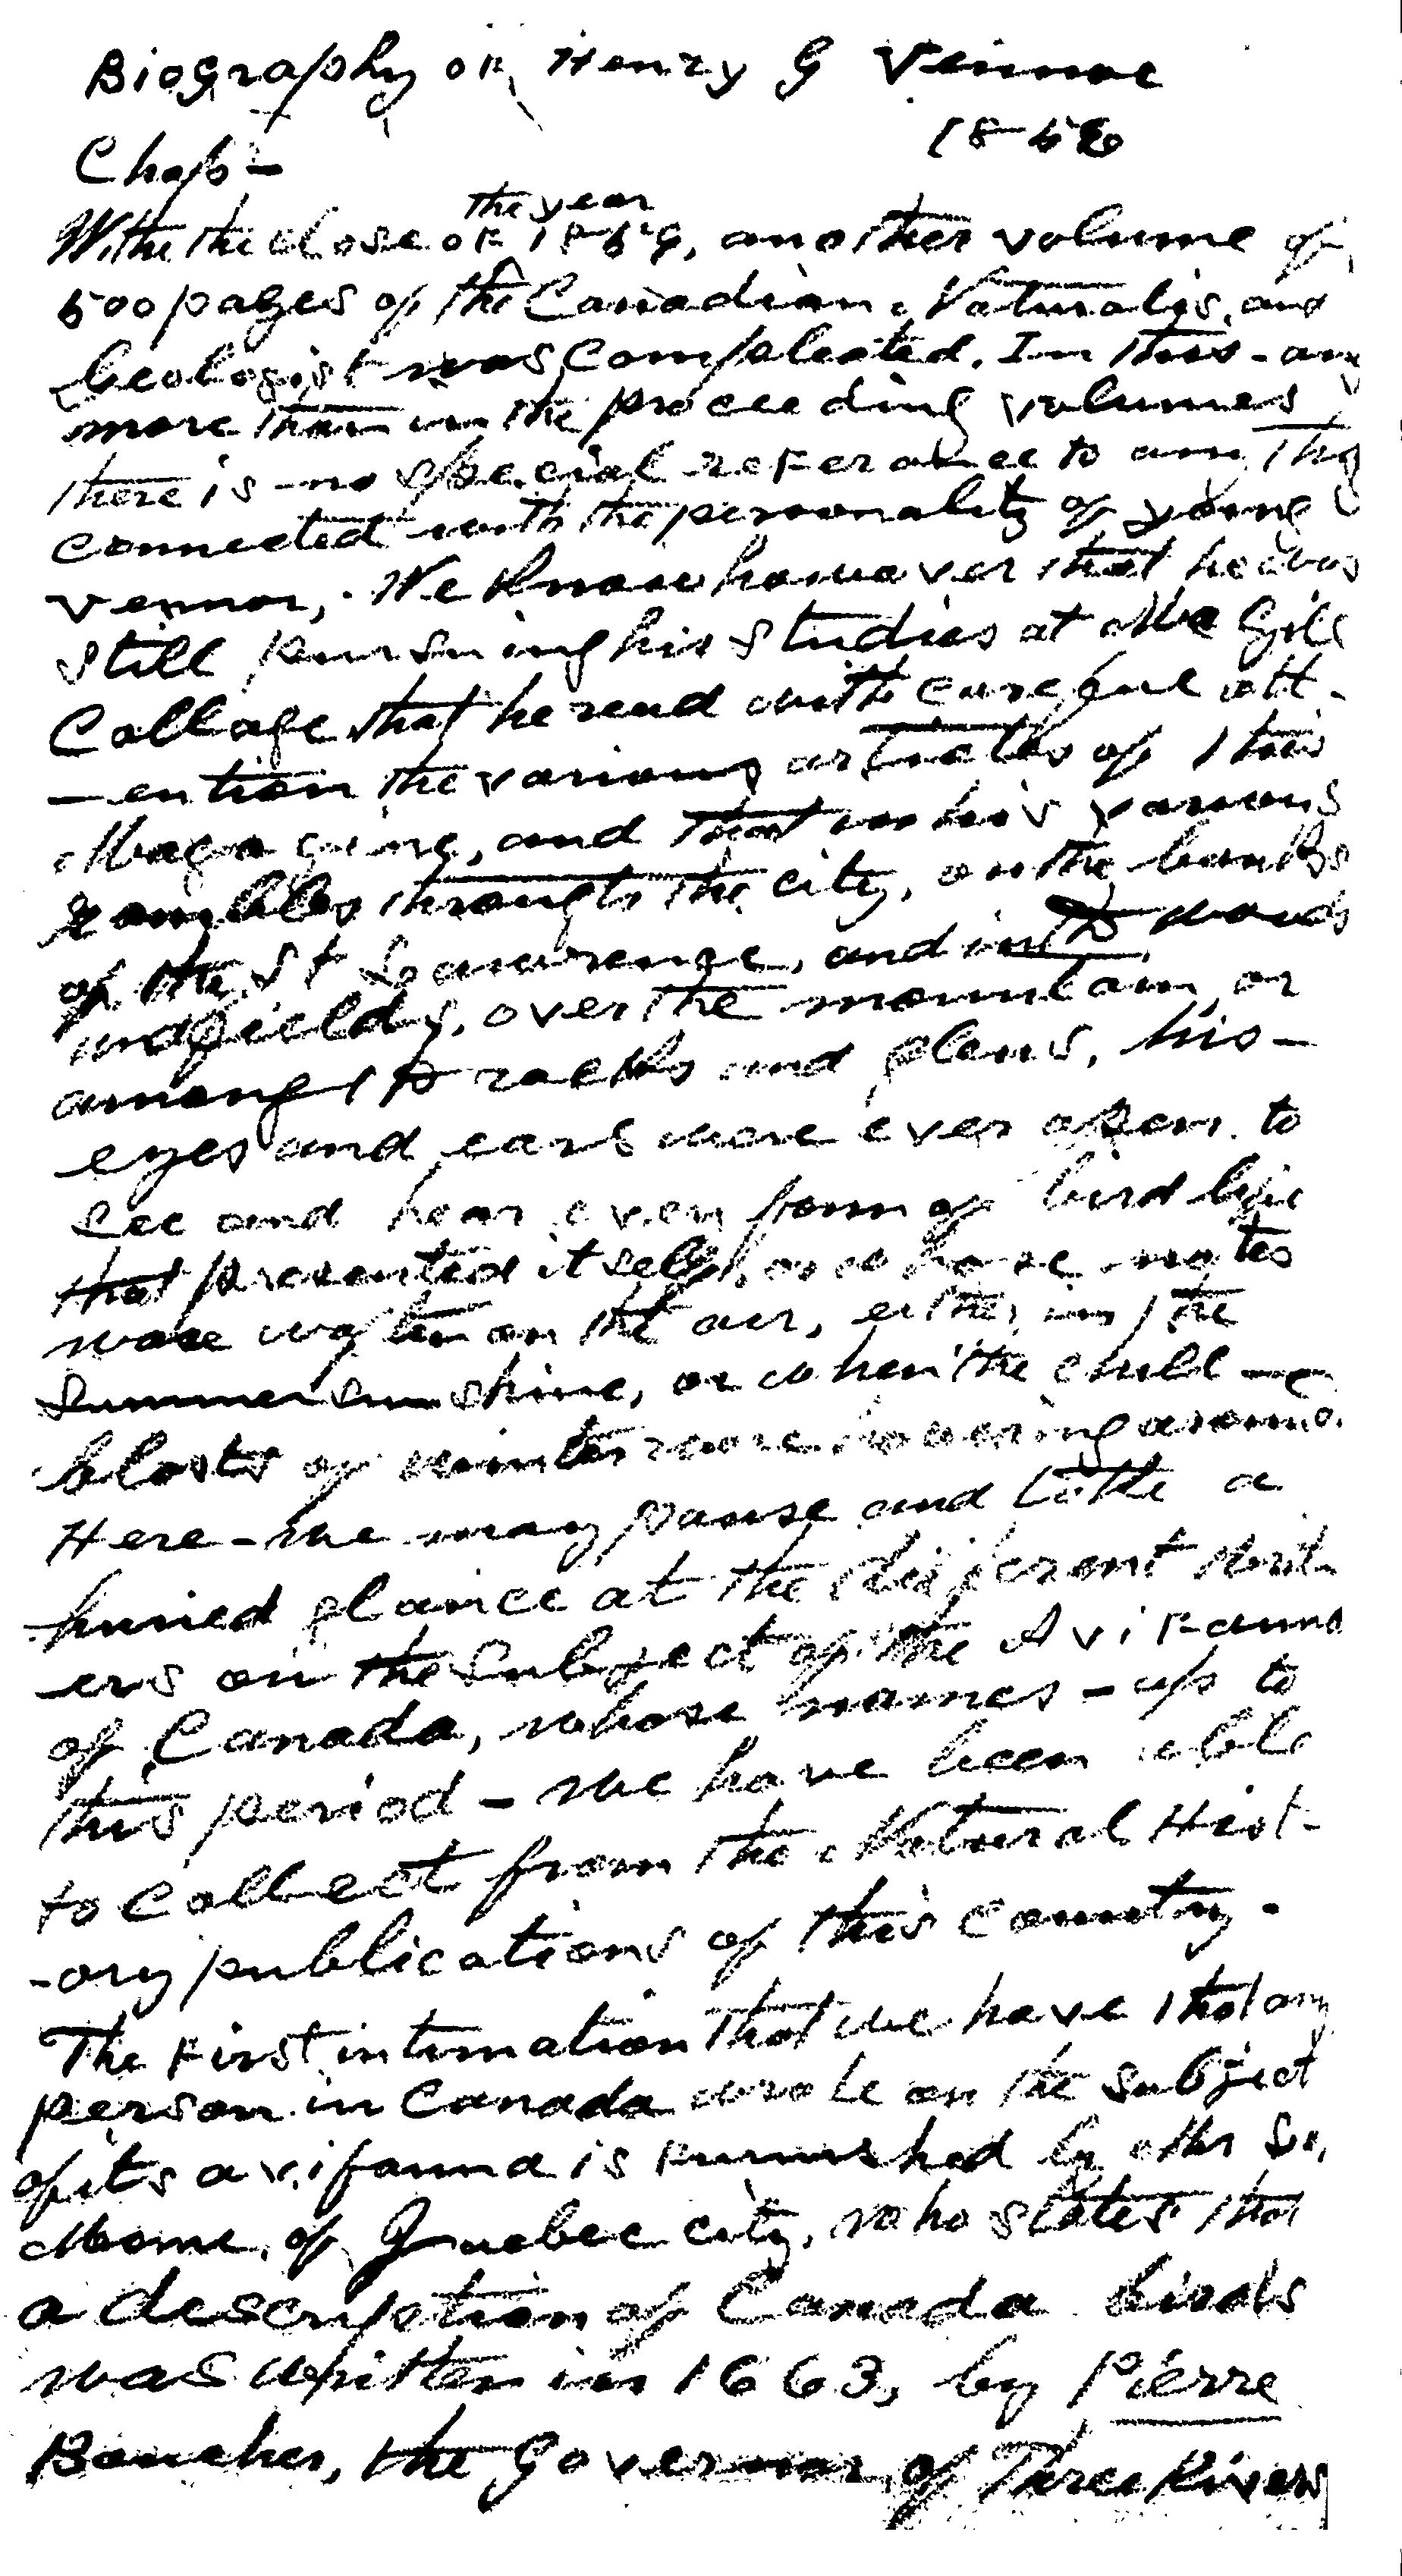 Biography of Henry G Vennor
Chap-
the year
With the close of 1859, another volume of
500 pages of the Canadian Naturalis, and
Geologist was Compleated. In this - any
more than in the proceeding volumes
there is - no special referance to any Thg
Connected with the personality of young
Vennor,. We Know however that he was
still pursuing his studies at Mc Gill
Collage that he read with careful att-
-ention the various articles of this
Magazine, and that in his various
rambles through the city, on the banks
of the St Lawrence, and in woods
and fields, over the mountain or
among rocks and glens, his-
eyes and ears were ever open to
see and hear every form of bird life
that presented itself, or whose notes
ware waften on the air, either in the
Summer Sun shine, or when the chill
blasts of winter ware hovering around.
Here - we may pause and take a
huried glance at the different writ-
ers on the Subject of the Avifauna
of Canada, whose names - up to
this period - we have been able
to Collect from the Natural Hist-
-ory publications of this Country.
The First intimation That we have that any
person in Canada wrote on the subject
of its avifauna is Furnished by Mr
Moine, of Quebec city, who states that
a description of Canada birds
was written in 1663, by Pierre
Boucher, the Governor of Three Rivers